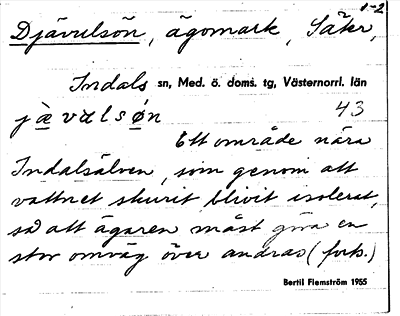 1-2
Djävulsön, ägomark, Säkr,
Indals sn, Med. ö. doms. tg, Västernorrl. län
jàvulsøn 43
Ett område nära
Indalsälven, som genom att
vattnet skurit blivit isolerat,
så att ägaren måst göra en
stor omväg över andras (forts.)
Bertil Flemström 1955